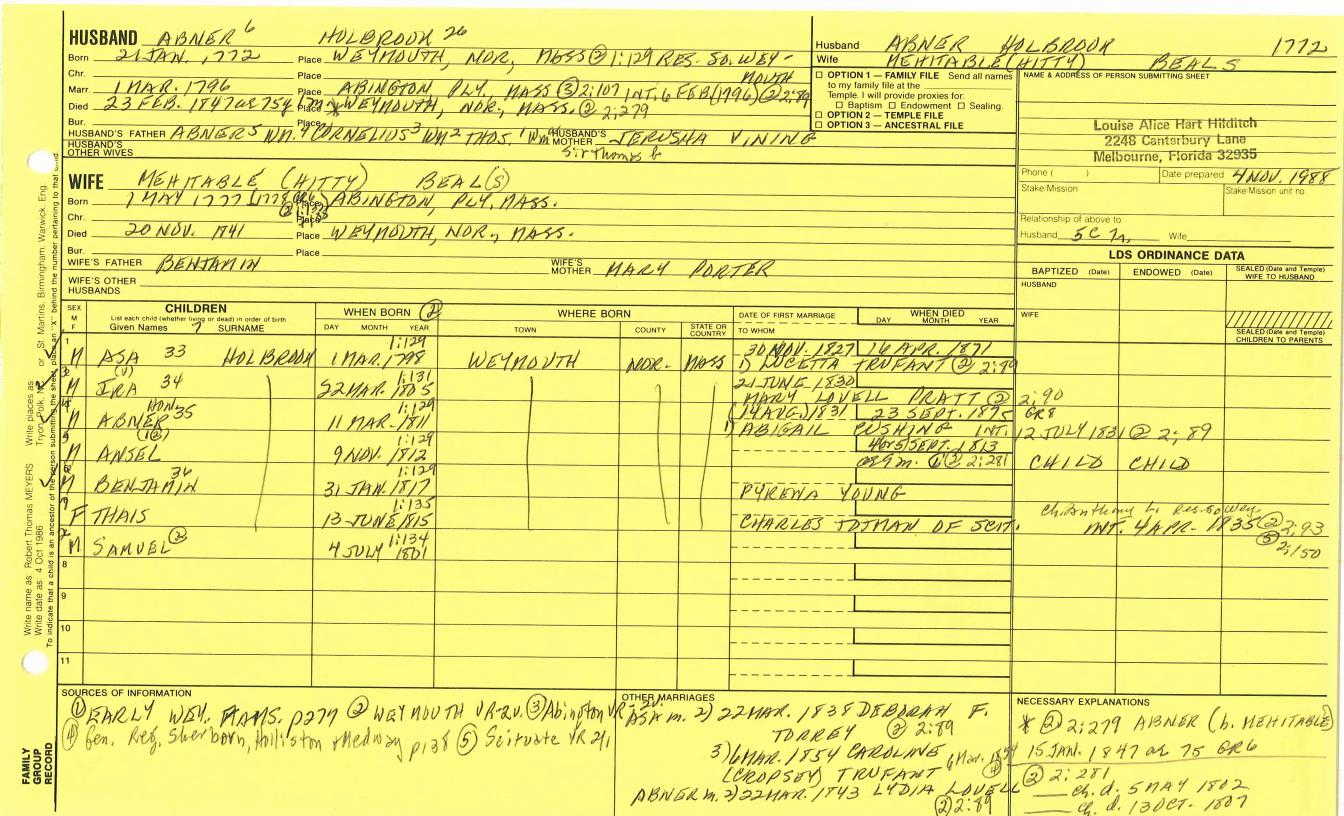 HUSBAND ABNER 6 HOLBROOK 26
Born 21 JAN. 1772 Place WEYMOUTH, NOR, MASS ② 1:129 RES. SO. WEY-
MOUTH
Chr. Place
Marr. 1 MAR. 1796 Place ABINGTON PLY., MASS ③ 2:107 INT. 6 FEB (1796) ② 2:89
Died 23 FEB. 1847 ae 75y Place WEYMOUTH, NOR., MASS. ② 2:279
Bur. Place
HUSBAND'S FATHER ABNER 5 WM. 4 CORNELIUS 3 WM 2 THOS. 1 Wm HUSBAND'S MOTHER JERUSHA VINING
Sir Thomas
HUSBAND'S OTHER WIVES
Husband ABNER HOLBROOK 1772
Wife MEHITABLE (HITTY) BEALS
☐ OPTION 1 — FAMILY FILE Send all names
to my family file at the
Temple. I will provide proxies for:
☐ Baptism ☐ Endowment ☐ Sealing.
☐ OPTION 2 — TEMPLE FILE
☐ OPTION 3 — ANCESTRAL FILE
NAME & ADDRESS OF PERSON SUBMITTING SHEET
Louise Alice Hart Hilditch
2248 Canterbury Lane
Melbourne, Florida 32935
Phone ( ) Date prepared 4 NOV. 1988
Stake/Mission Stake/Mission unit no.
Relationship of above to
Husband 5C Wife
WIFE MEHITABLE (HITTY) BEAL(S)
Born 1 MAY 1777 Place ABINGTON, PLY, MASS.
Chr. Place
Died 20 NOV. 1841 Place WEYMOUTH, NOR., MASS.
Bur. Place
WIFE'S FATHER BENJAMIN WIFE'S MOTHER MARY PORTER
WIFE'S OTHER HUSBANDS
LDS ORDINANCE DATA
BAPTIZED (Date) ENDOWED (Date) SEALED (Date and Temple) WIFE TO HUSBAND
HUSBAND
WIFE
SEALED (Date and Temple) CHILDREN TO PARENTS
SEX M F CHILDREN WHEN BORN ② WHERE BORN DATE OF FIRST MARRIAGE WHEN DIED
List each child (whether living or dead) in order of birth
Given Names 7 SURNAME DAY MONTH YEAR TOWN COUNTY STATE OR COUNTRY TO WHOM DAY MONTH YEAR
1 1:129 30 NOV. 1827 16 APR. 1871
M ASA 33 HOLBROOK 1 MAR. 1798 WEYMOUTH NOR. MASS 1) LUCETTA TRUFANT ② 2:89
1:131 21 JUNE 1830
M IRA 34 22 MAR. 1805 MARY LOVELL PRATT ② 2:90
HON. 1:129 (14 AUG.) 1831 23 SEPT. 1875 GR8
M ABNER 35 11 MAR. 1811 1) ABIGAIL CUSHING INT. 12 JULY 1831 ② 2:89
1:129 4 or 5 SEPT. 1813
M ANSEL 9 NOV. 1812 ae 9m. ② 2:281 CHILD CHILD
1:129
M BENJAMIN 36 31 JAN. 1817 PYRENA YOUNG
1:135 Ch. Anthony L. Res. So. Wey.
F THAIS 13 JUNE 1815 CHARLES TOTMAN OF SCIT. INT. 4 APR. 1835 ② 2:93
⑤ 2:150
1:134
M SAMUEL ② 4 JULY 1801
8
9
10
11
SOURCES OF INFORMATION
① EARLY WEY. FAMS. p277 ② WEYMOUTH VR-2V. ③ Abington VR-2V.
④ Gen. Reg. Sherborn, Holliston & Medway p138 ⑤ Scituate VR 2V
OTHER MARRIAGES
ASA m. 2) 22 MAR. 1838 DEBORAH F.
TORREY ② 2:89
3) 6 MAR. 1854 CAROLINE
(CROPSEY) TRUFANT 6 Mar. 1854 ④
ABNER m. 2) 22 MAR. 1843 LYDIA LOVELL
② 2:89
NECESSARY EXPLANATIONS
* ② 2:279 ABNER (h. MEHITABLE)
15 JAN. 1847 ae 75 GR6
② 2:281
ch. d. 5 MAY 1802
ch. d. 13 OCT. 1807
Write name as: Robert Thomas MEYERS Write places as: Tryon, Polk, N. or St. Martins, Birmingham, Warwick, Eng.
Write date as: 4 Oct 1986
To indicate that a child is an ancestor of the person submitting the sheet, place an "X" behind the number pertaining to that
FAMILY
GROUP
RECORD